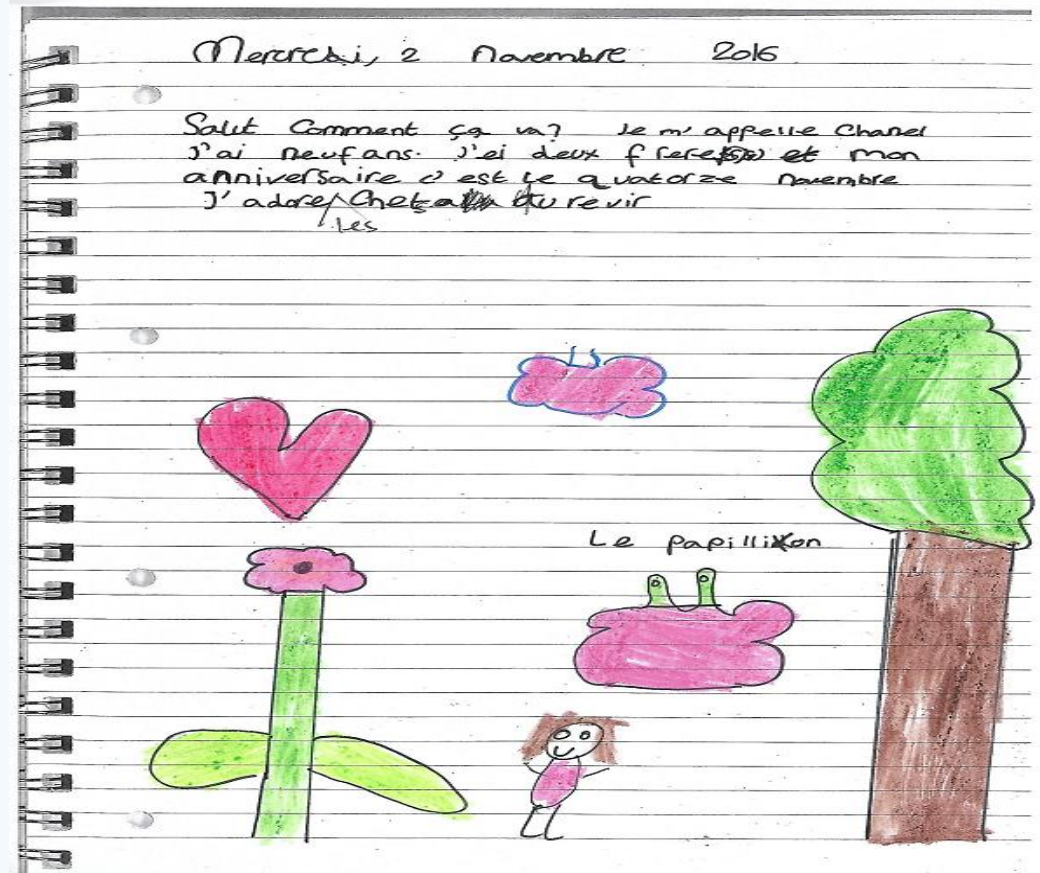 Mercredi, 2 Novembre 2016
Salut Comment ça va? Je m'appelle Chanel
J'ai neuf ans. J'ei deux frere et mon
anniversaire c'est le quatorze novembre
J'adore les au revir
Le papillion